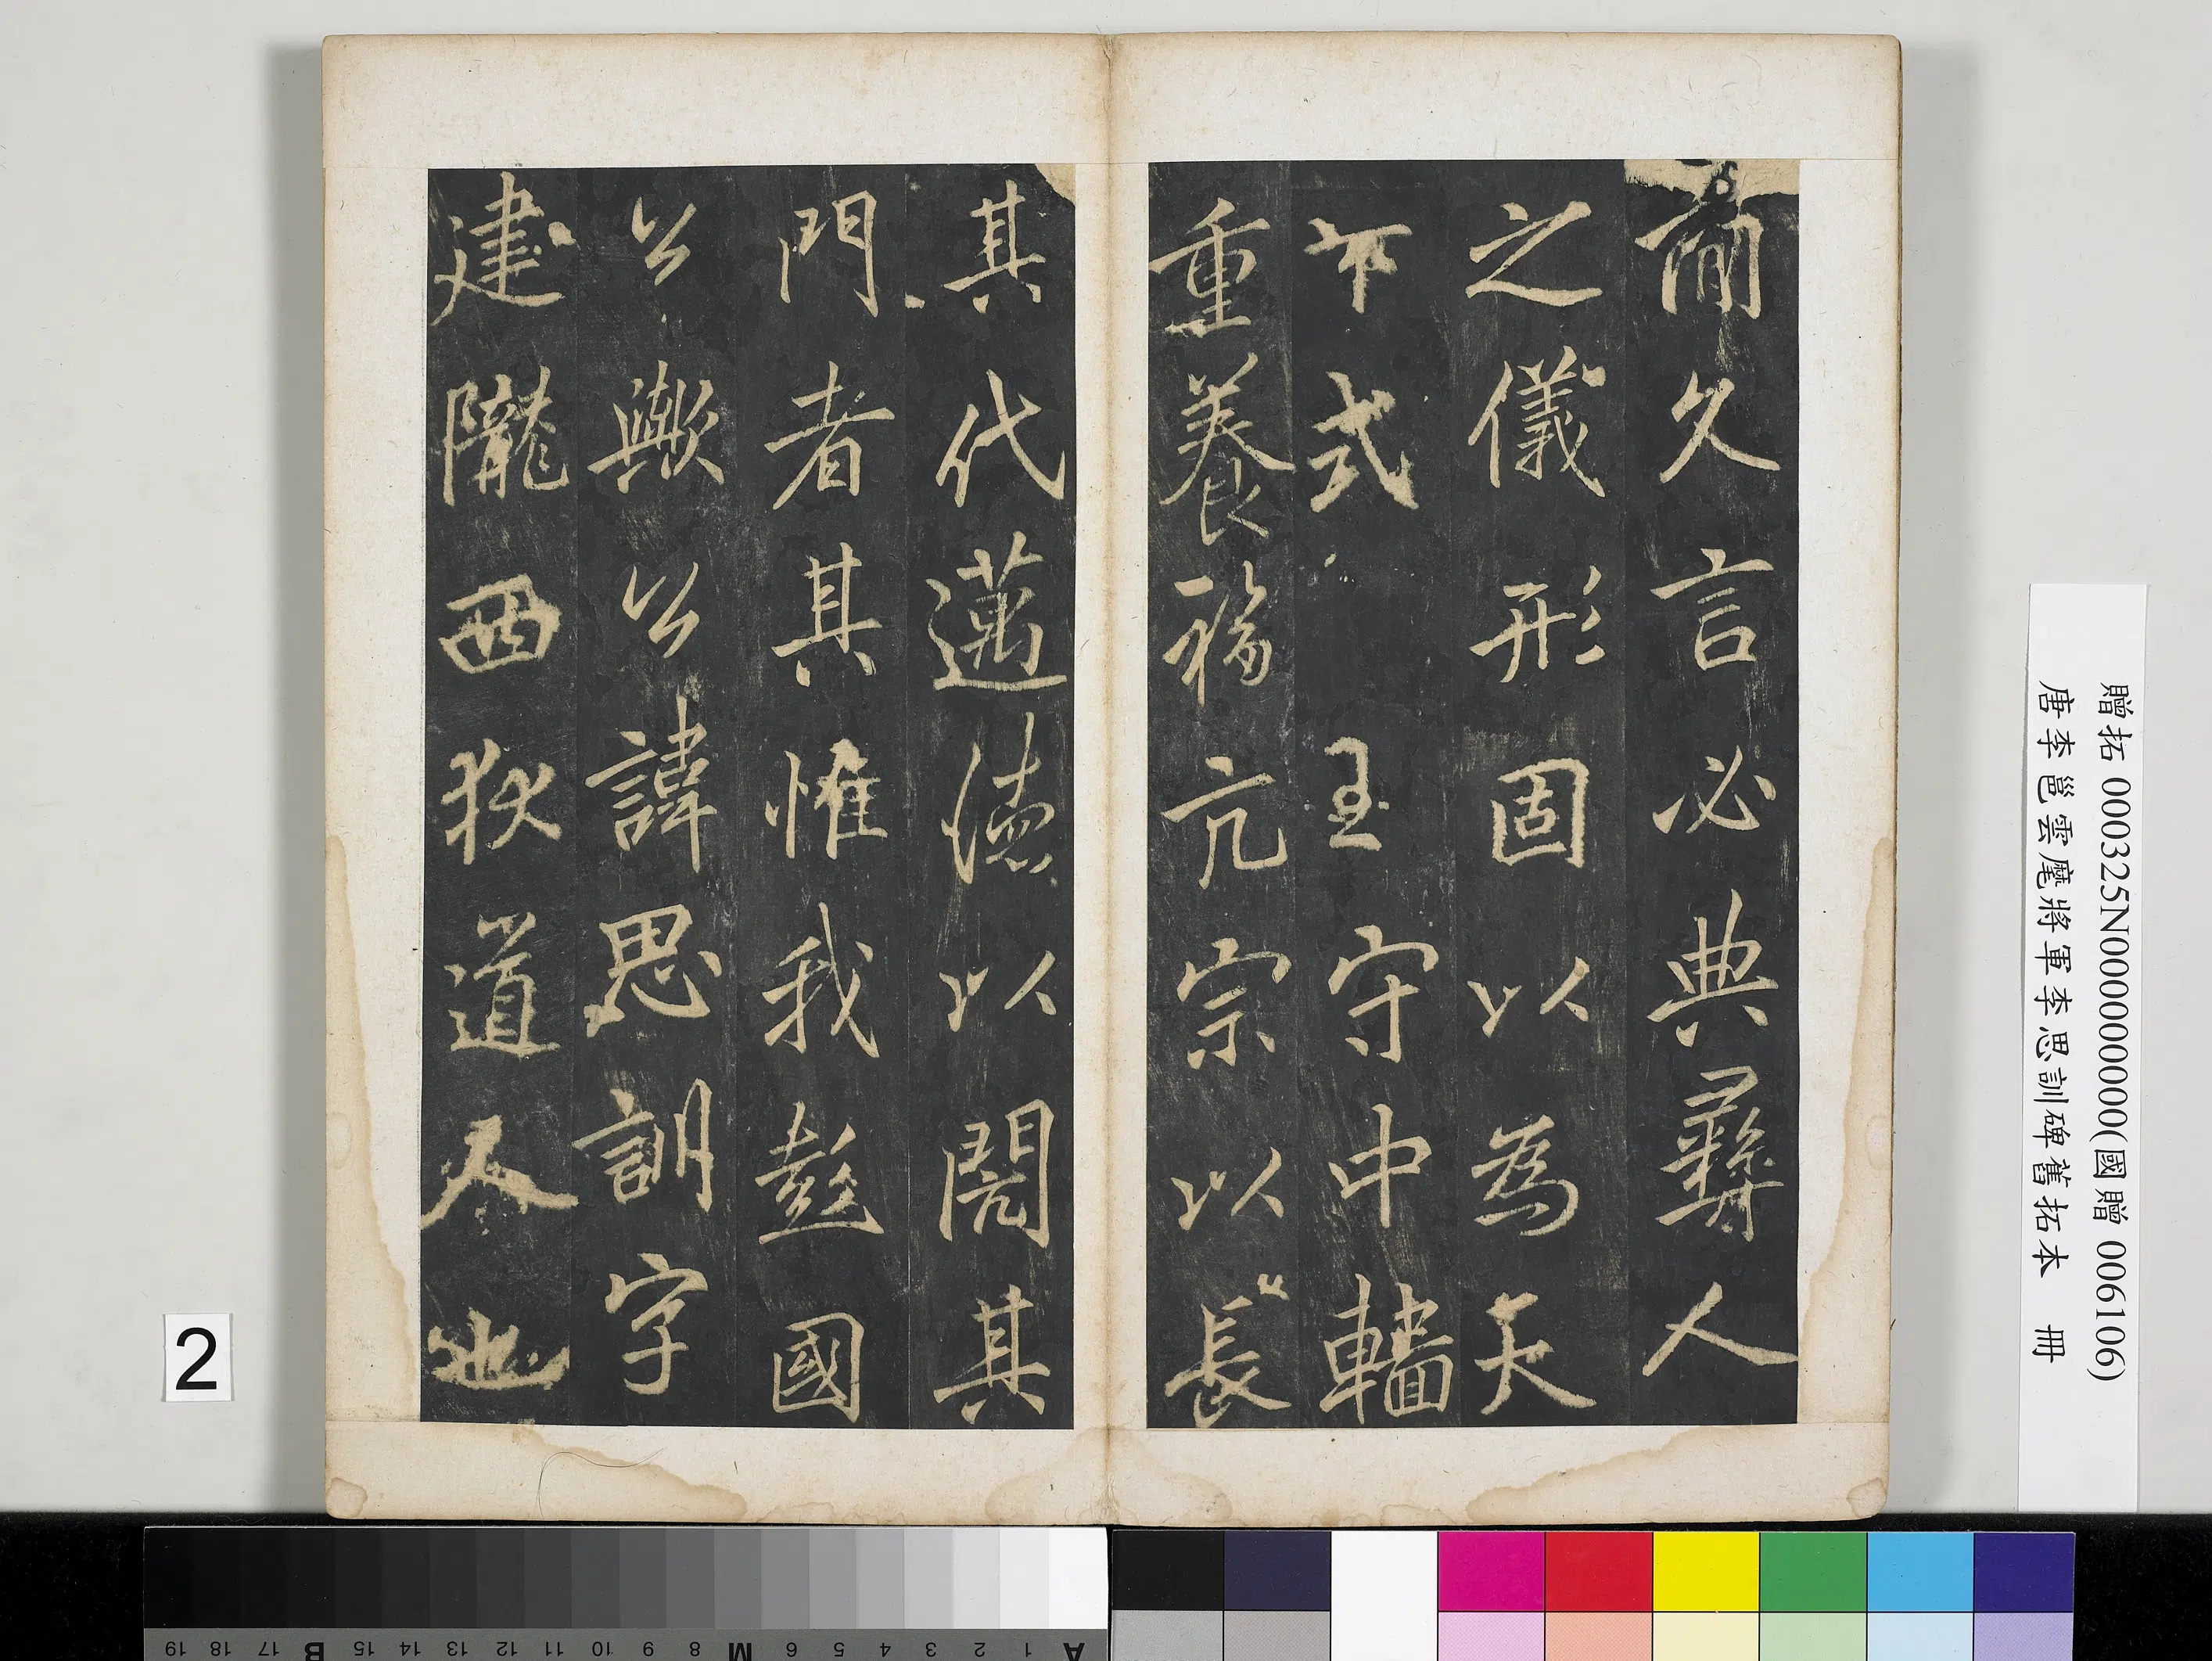 簡久言必典彝人
之儀形固以為天
下式至守中轖
重養福亢宗以長
其代邁德以閌其
門者其惟我彭國
公歟公諱思訓字
建隴西狄道人也
贈拓 000325N000000000(國贈 006106)
唐李邕雲麾將軍李思訓碑舊拓本 冊
2
A 1 2 3 4 5 6 M 8 9 10 11 12 13 14 15 B 17 18 19